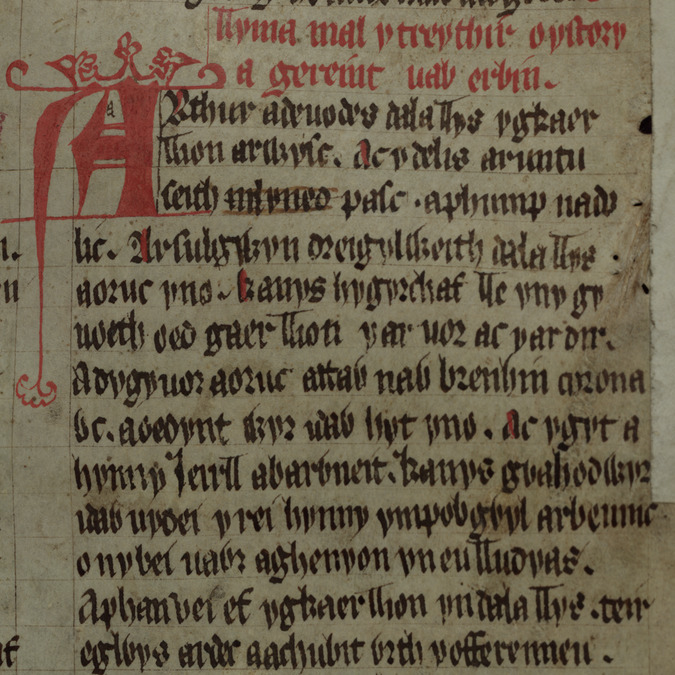 llyma mal ytreythir oystory
a gereint uab erbin.
Arthur adeuodes dala llys ygkaer
llion arỽysc. Ac ydelis aruntu
seith mlyned pasc. aphump nado
lic. Ar sulgỽyn dreigylweith dala llys
aoruc yno. kanys hygyrchaf lle yny gy
uoeth oed gaer llion yar uor ac yar dir.
Adygyuor aoruc attaỽ naỽ brenhin corona
ỽc. aoedynt ỽyr idaỽ hyt yno. Ac ygyt a
hynny Ieirll abarỽneit. kanys gỽahodwyr
idaỽ uydei yrei hynny ympob gỽyl arbennic
onybei uaỽr aghenyon yneu lludyas.
Aphan uei ef ygkaer llion yn dala llys. teir
eglỽys ardec aachubit ỽrth yofferenneu.